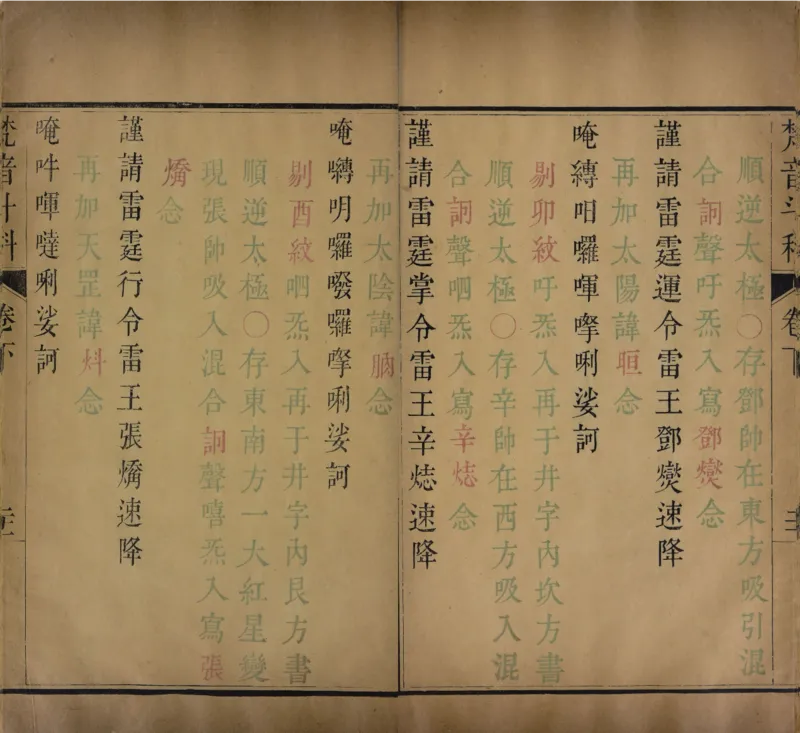 梵音斗科 卷下
順逆太極〇存鄧帥在東方吸引混
合訶聲吁炁入寫鄧燮念
謹請雷霆運令雷王鄧燮速降
再加太陽諱晅念
唵縛呬囉㖶㗚唎娑訶
剔卯紋吁炁入再于井字內坎方書
順逆太極〇存辛帥在西方吸入混
合訶聲呬炁入寫辛𤈶念
謹請雷霆掌令雷王辛𤈶速降
再加太陰諱朒念
唵囀明囉發囉㗚唎娑訶
剔酉紋呬炁入再于井字內艮方書
順逆太極〇存東南方一大紅星變
現張帥吸入混合訶聲嘻炁入寫張
燆念
謹請雷霆行令雷王張燆速降
再加天罡諱㪺念
唵吽㖶噠唎娑訶
梵音斗科 卷下